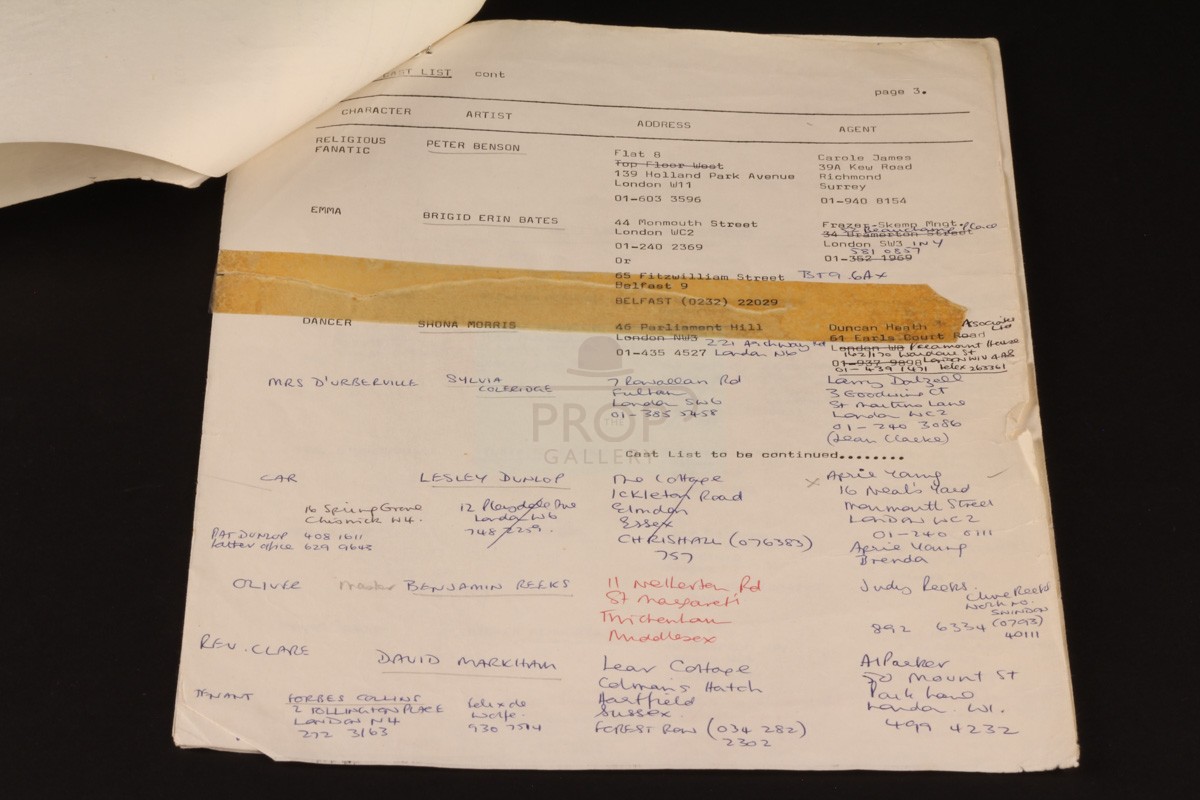 CAST LIST cont
page 3.
CHARACTER ARTIST ADDRESS AGENT
RELIGIOUS FANATIC
PETER BENSON
Flat 8
Top Floor West
139 Holland Park Avenue
London W11
01-603 3596
Carole James
39A Kew Road
Richmond
Surrey
01-940 8154
EMMA
BRIGID ERIN BATES
44 Monmouth Street
London WC2
01-240 2369
Or
65 Fitzwilliam Street BT9 6AX
Belfast 9
BELFAST (0232) 22029
Frazer-Skemp Mngt.
Place
34 Bramerton Street
London SW3 1NY
581 0357
01-352 1969
DANCER
SHONA MORRIS
46 Parliament Hill
London NW3 221 Archway Rd
01-435 4527 London N6
Duncan Heath Associates Ltd
61 Earls Court Road
London W8 Paramount House
162/170 Wardour St
01-937 9898 London W1V 4AB
01-439 1471 telex 263361
MRS D'URBERVILLE
SYLVIA
COLERIDGE
7 Rowallan Rd
Fulham
London SW6
01-385 5458
Larry Dalzell
3 Goodwins Ct
St Martins Lane
London WC2
01-240 3086
(Jean Clarke)
THE PROP GALLERY
Cast List to be continued........
CAR
LESLEY DUNLOP
The Cottage
Ickleton Road
Elmdon
Essex
CHRISHALL (076383)
757
April Young
16 Neal's Yard
Monmouth Street
London WC2
01-240 0111
April Young
Brenda
16 Spring Grove
Chiswick W4.
London W6
748 2259.
PAT DUNLOP 408 1611
father office 629 9643
OLIVER
Master BENJAMIN REEKS
11 Nellerton Rd
St Margarets
Twickenham
Middlesex
Judy Reeks.
892 6334
Clive Reeks
work no.
SWINDON
(0793)
40111
REV. CLARE
DAVID MARKHAM
Lear Cottage
Colman's Hatch
Hartfield
Sussex.
FOREST ROW (034 282)
2302
Al Parker
50 Mount St
Park Lane
London. W1.
499 4232
TENANT
FORBES COLLINS
2 TOLLINGTON PLACE
LONDON N4
272 3163
Felix de
Wolfe.
930 7514